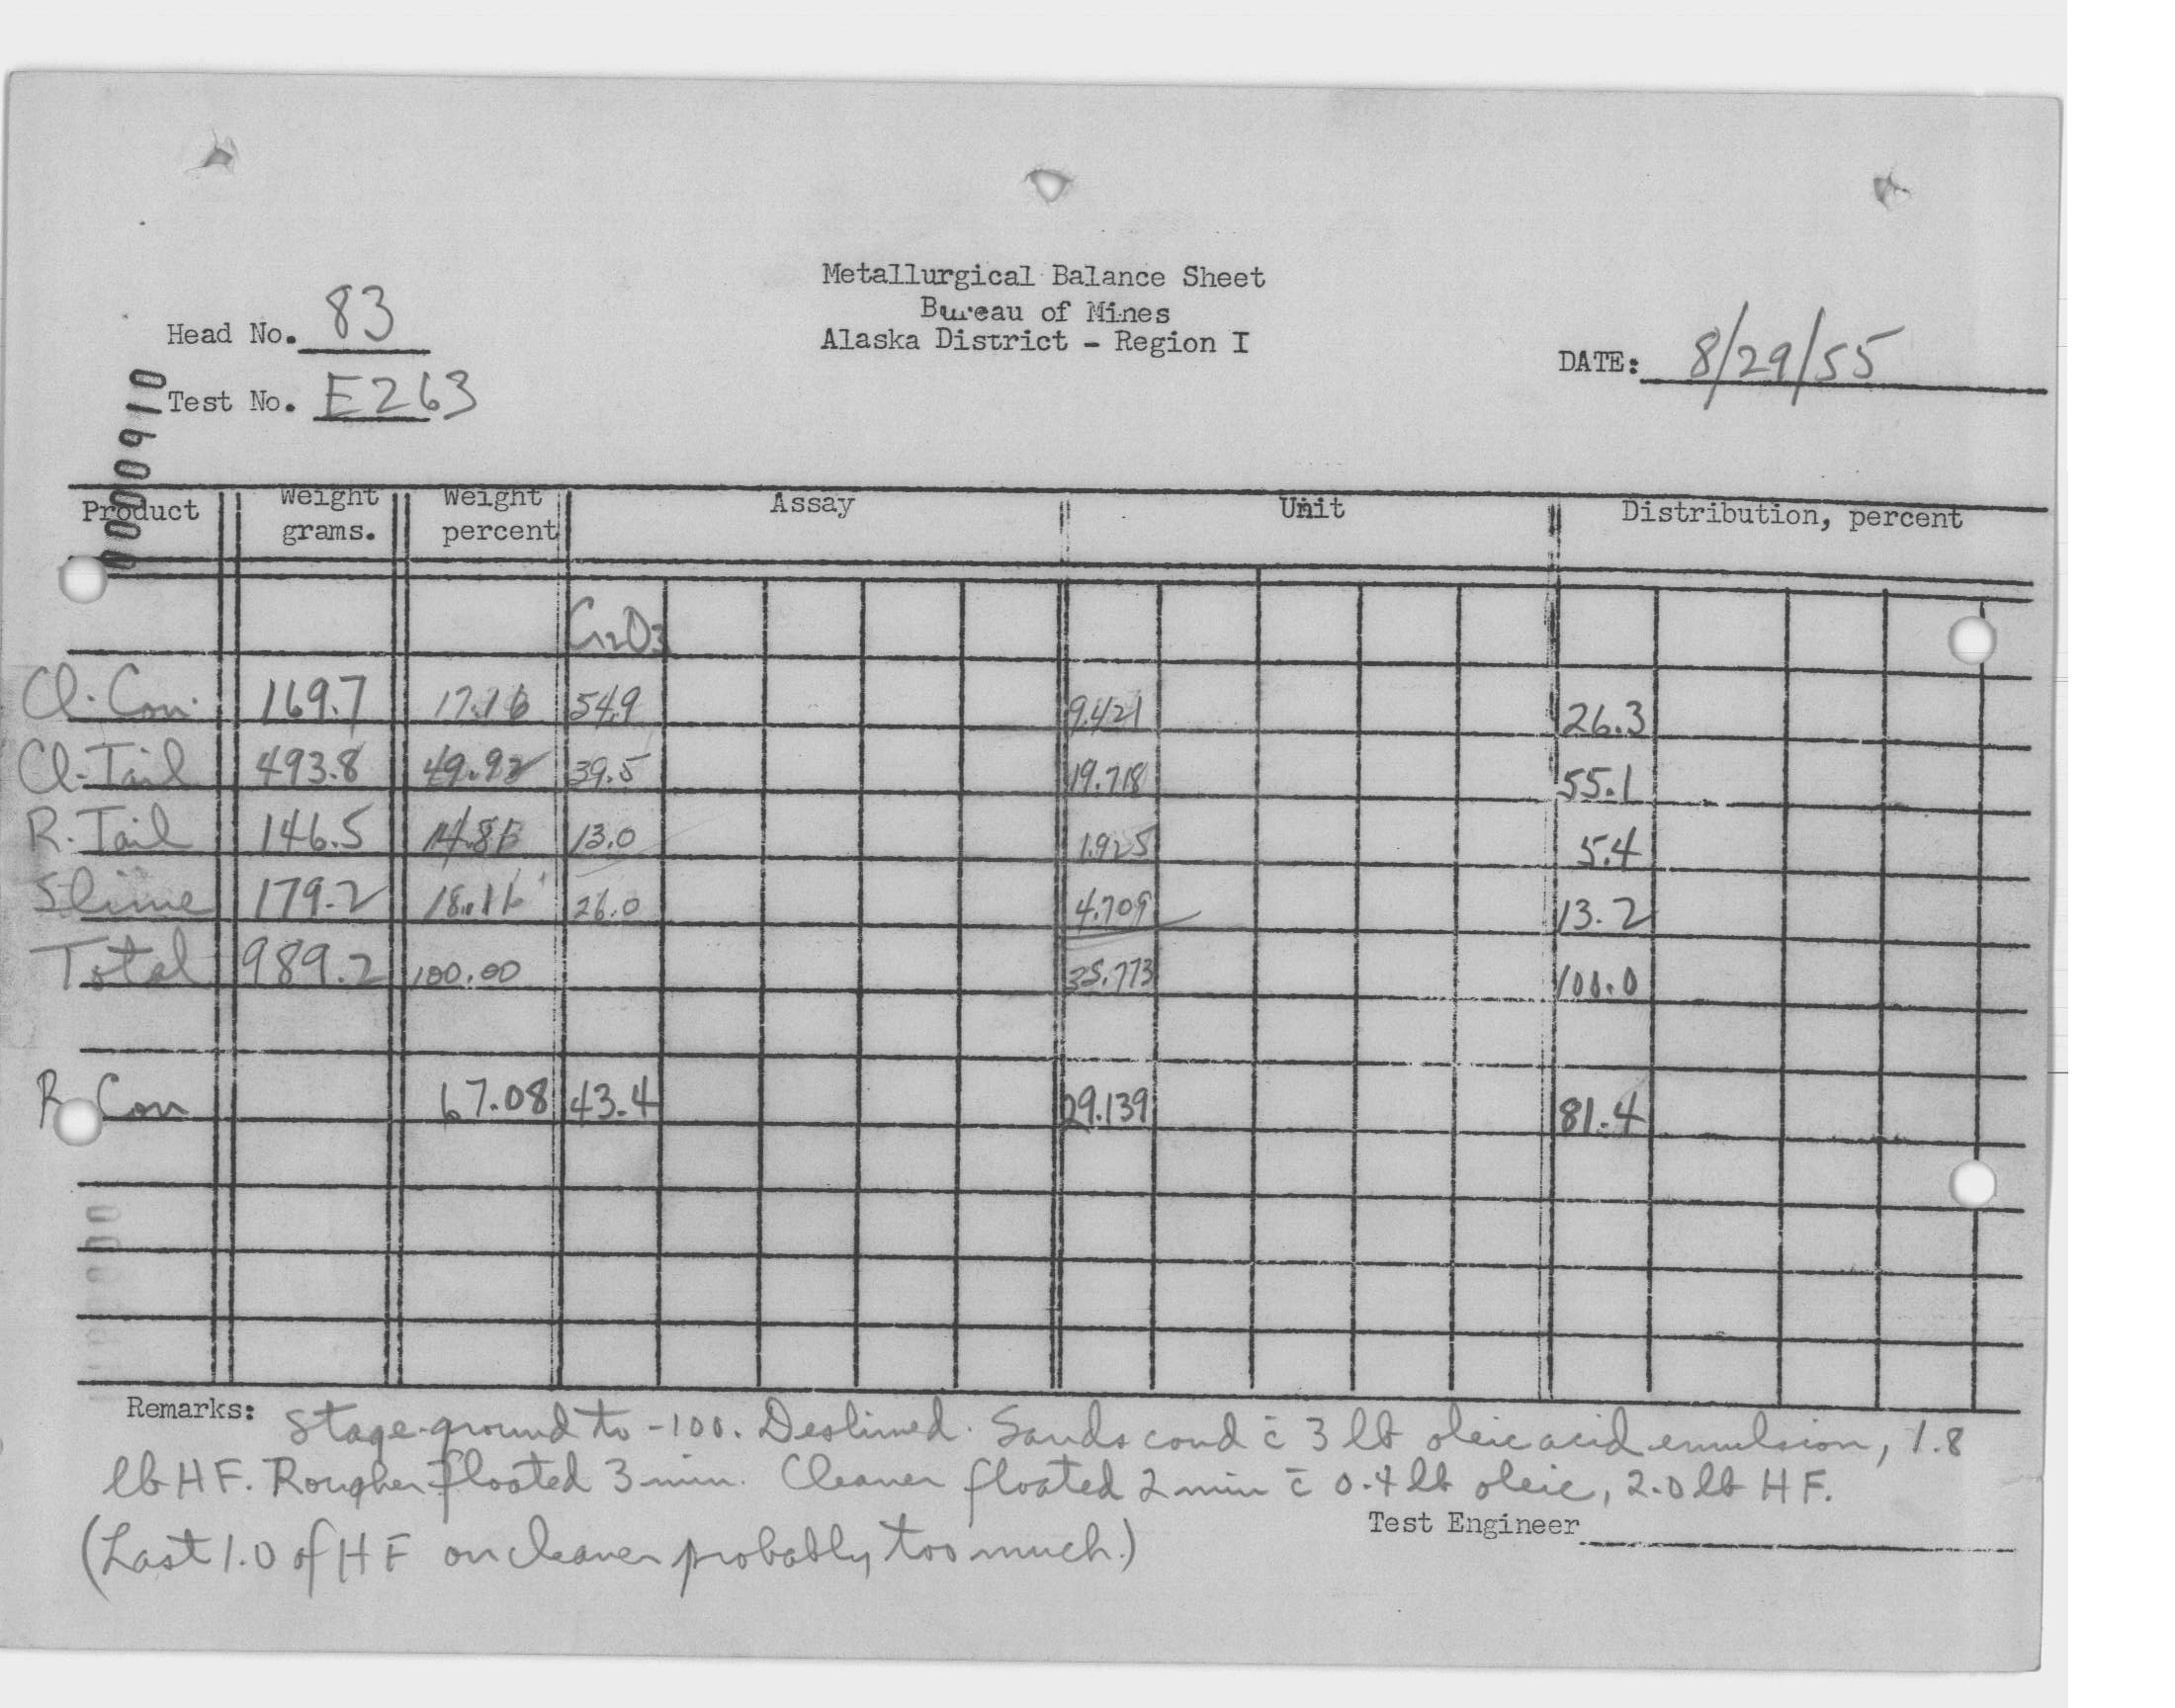 Metallurgical Balance Sheet
Bureau of Mines
Alaska District - Region I
Head No. 83
Test No. E263
DATE: 8/29/55
0000910
Product Weight grams. Weight percent Assay Unit Distribution, percent
Cr2O3
Cl. Con. 169.7 17.16 54.9 9.421 26.3
Cl. Tail 493.8 49.92 39.5 19.718 55.1
R. Tail 146.5 13.0 1.925 5.4
Slime 179.2 18.11 26.0 4.709 13.2
Total 989.2 100.00 35.773 100.0
R Con 67.08 43.4 29.139 81.4
Remarks: Stage-ground to -100. Deslimed. Sands cond c̄ 3 lb oleic acid emulsion, 1.8
lb HF. Rougher floated 3 min. Cleaner floated 2 min c̄ 0.4 lb oleic, 2.0 lb HF.
Test Engineer
(Last 1.0 of HF on cleaner probably too much.)